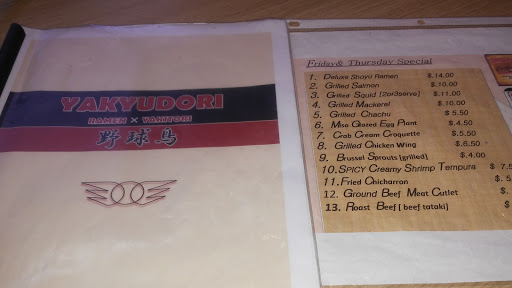 YAKYUDORI
RAMEN × YAKITORI
野球鳥
Friday& Thursday Special
1. Deluxe Shoyu Ramen $.14.00
2. Grilled Salmon $.10.00
3. Grilled Squid [2or3serve] $.11.00
4. Grilled Mackerel $.10.00
5. Grilled Chashu $ 5.50
6. Miso Glazed Egg Plant $.4.50
7. Crab Cream Croquette $.5.50
8. Grilled Chicken Wing $.6.50
9. Brussel Sprouts [grilled] $.4.00
10. SPICY Creamy Shrimp Tempura $ 7.5
11. Fried Chicharron $. 5
12. Ground Beef Meat Cutlet $.
13. Roast Beef [ beef tataki] $.